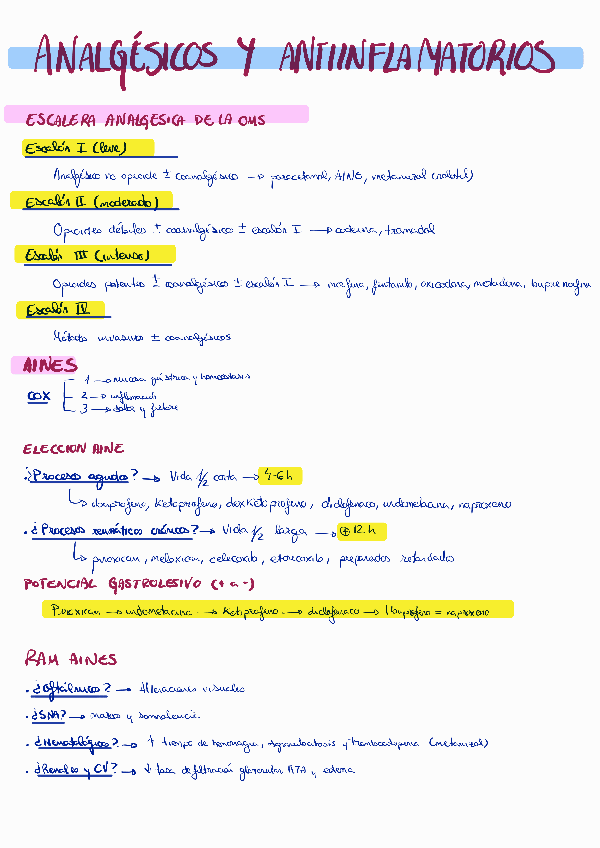 ANALGÉSICOS Y ANTIINFLAMATORIOS
ESCALERA ANALGESICA DE LA OMS
Escalón I (leve)
Analgésico no opioide ± coanalgésico → paracetamol, AINE, metamizol (nolotil)
Escalón II (moderado)
Opioides débiles ± coanalgésico ± escalón I → codeina, tramadol
Escalón III (intenso)
Opioides potentes ± coanalgésicos ± escalón I → morfina, fentanilo, oxicodona, metadona, buprenorfina
Escalón IV
Métodos invasivos ± coanalgésicos
AINES
COX
1 → mucosa gástrica y homeostasis
2 → inflamación
3 → dolor y fiebre
ELECCION AINE
· ¿Procesos agudos? → Vida 1/2 corta → 4-6h
↳ ibuprofeno, Ketoprofeno, dexketoprofeno, diclofenaco, indometacina, naproxeno
· ¿Procesos reumáticos crónicos? → Vida 1/2 larga → ⊕ 12h
↳ piroxicam, meloxicam, celecoxib, etoricoxib, preparados retardados
POTENCIAL GASTROLESIVO (+ a -)
Piroxicam → indometacina → Ketoprofeno → diclofenaco → Ibuprofeno = naproxeno
RAM AINES
· ¿Oftálmicos? → Alteraciones visuales
· ¿SNA? → mareo y somnolencia
· ¿Hematológico? → ↑ tiempo de hemorragia, Agranulocitosis y trombocitopenia (metamizol)
· ¿Renales y CV? → ↓ tasa de filtración glomerular HTA y edema